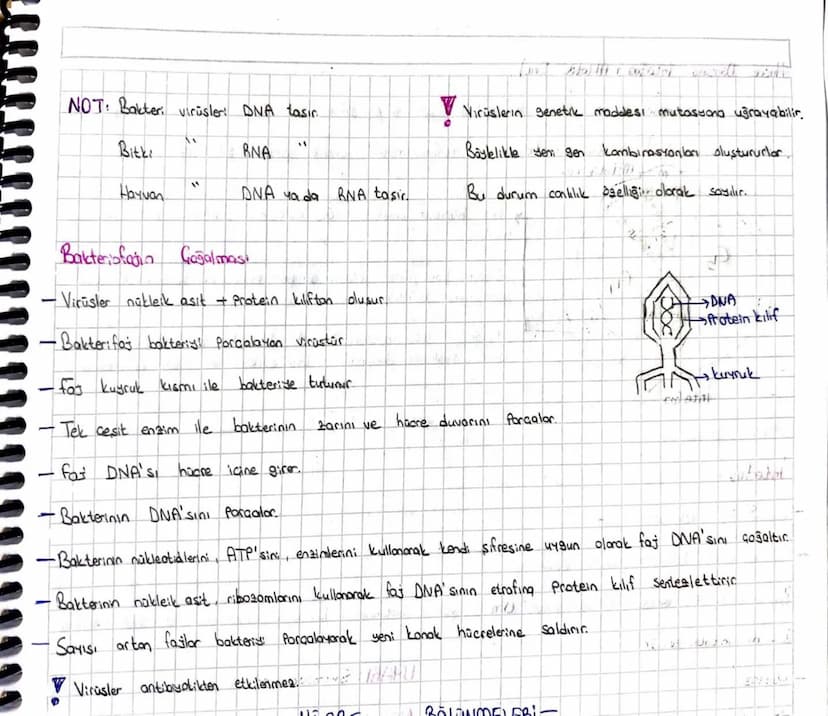 NOT: Bakteri virüsleri DNA taşır.
Bitki " RNA "
Hayvan " DNA ya da RNA taşır.
! Virüslerin genetik maddesi mutasyona uğrayabilir.
Böylelikle yeni gen kombinasyonları oluştururlar.
Bu durum canlılık özelliği olarak sayılır.
Bakteriofajın Çoğalması
- Virüsler nükleik asit + Protein kılıftan oluşur.
- Bakterifaj bakteriyi Parçalayan virüstür
- faj kuyruk kısmı ile bakteriye tutunur
- Tek çeşit enzim ile bakterinin zarını ve hücre duvarını Parçalar.
- faj DNA'sı hücre içine girer.
- Bakterinin DNA'sını Parçalar.
- Bakterinin nükleotidlerini, ATP'sini, enzimlerini kullanarak kendi şifresine uygun olarak faj DNA'sını çoğaltır.
- Bakterinin nükleik asit, ribozomlarını kullanarak faj DNA'sının etrafına Protein kılıf sentezlettirir
- Sayısı artan fajlar bakteriyi Parçalayarak yeni konak hücrelerine saldırır.
! Virüsler antibiyotikten etkilenmez.
→DNA
→Protein kılıf
→kuyruk
BÖLÜNMELERİ-